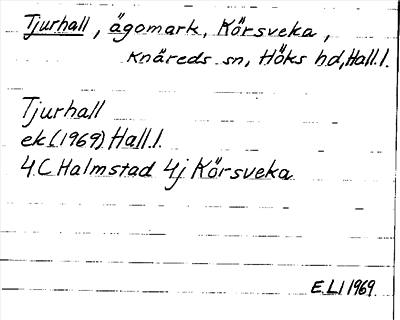 Tjurhall, ägomark, Körsveka,
Knäreds sn, Höks hd, Hall.l.
Tjurhall
ek.(1969) Hall.l.
4C Halmstad 4j Körsveka
E.Ll 1969.